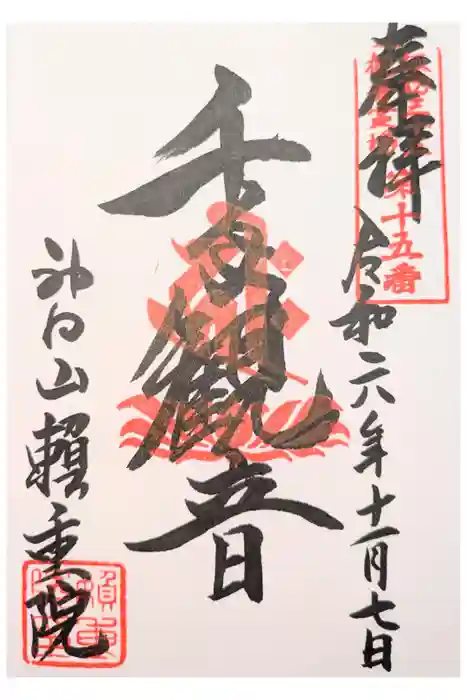 奉拝
第十五番
令和六年十一月七日
千手観音
神向山賴重院
賴重院